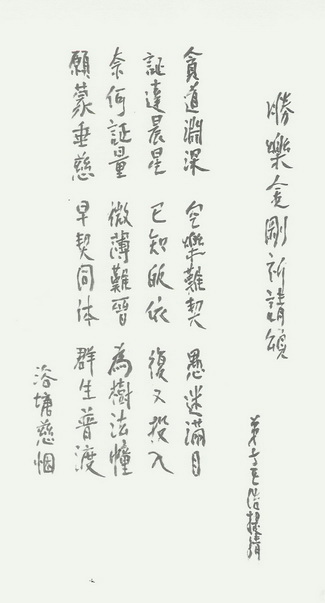 勝樂金剛祈請頌
弟子
貪道淵深 空樂難契 愚迷滿目
証達晨星 已知皈依 復又投入
奈何証量 微薄難晉 為樹法幢
願蒙垂慈 早契同体 群生普渡
浴塘慈悃